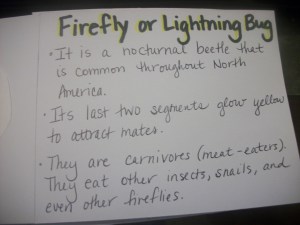 Firefly or Lightning Bug
• It is a nocturnal beetle that
is common throughout North
America.
• Its last two segments glow yellow
to attract mates.
• They are carnivores (meat-eaters).
They eat other insects, snails, and
even other fireflies.